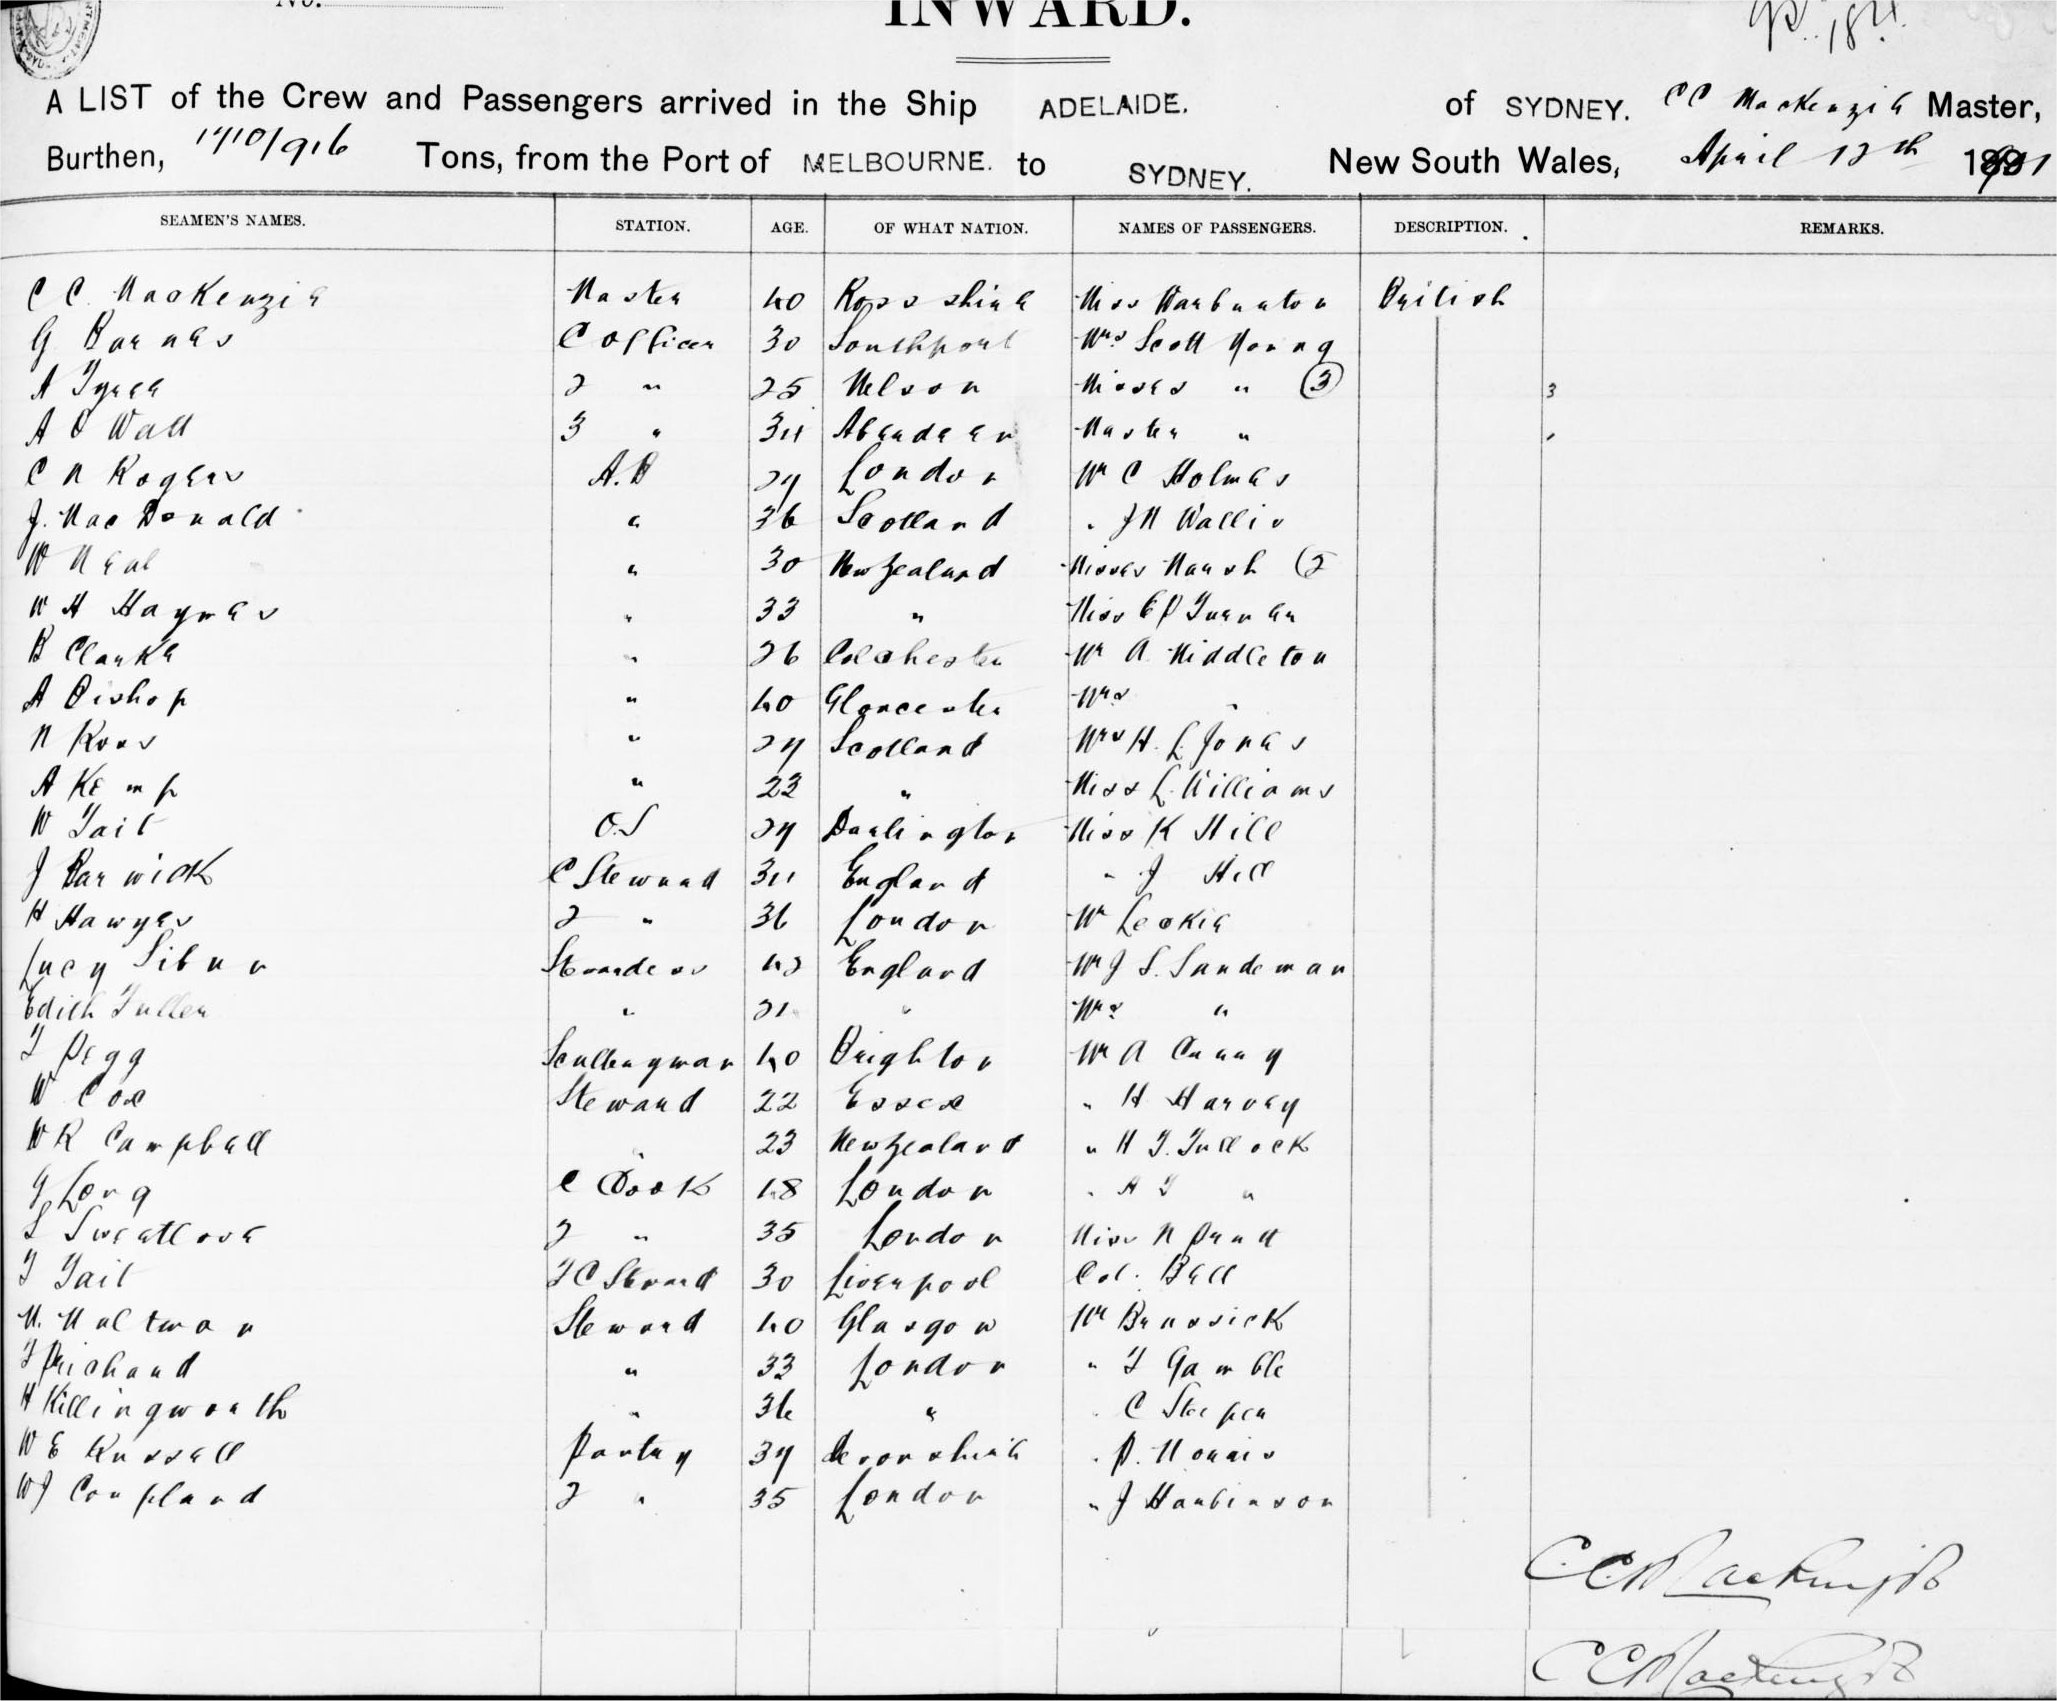 No.
INWARD.
A LIST of the Crew and Passengers arrived in the Ship ADELAIDE. of SYDNEY. C C MacKenzie Master,
Burthen, Tons, from the Port of MELBOURNE. to SYDNEY. New South Wales, April 12th 1901
SEAMEN'S NAMES. STATION. AGE. OF WHAT NATION. NAMES OF PASSENGERS. DESCRIPTION. REMARKS.
C C MacKenzie Master 40 Ross shire Miss Warburton British
G Barnes C Officer 30 Southport Mrs Scott Young
A Tyree 2 " 25 Nelson Misses " (3) 3
A O Watt 3 " 34 Aberdeen Master "
C N Rogers A.B 29 London Mr C Holmes
J. MacDonald " 36 Scotland " J N Wallis
W Neal " 30 New Zealand Misses Marsh (2
W H Haymes " 33 " Miss E P Turner
B Clarke " 26 Colchester Mr A Middleton
A Bishop " 40 Gloucester Mrs "
N Ross " 29 Scotland Mrs H. L. Jones
A Kemp " 22 " Miss L. Williams
W Tait O.S 29 Darlington Miss K Hill
J Barwick C Steward 34 England " J Hill
H Hawyes 2 " 36 London Mr Leckie
Lucy Sibun Stewardess 42 England Mr J S. Sandeman
Edith Fuller " 21 " Mrs "
T Pegg Sculleryman 40 Brighton Mr A Curry
W Cox Steward 22 Essex " H Harvey
W R Campbell " 23 New Zealand " H T. Tullock
G Long C Cook 48 London " A T "
S Sweatlove 2 " 35 London Miss N Pratt
T Tait F C Steward 30 Liverpool Col. Bell
M. Maltman Steward 40 Glasgow Mr Brassick
T Prichard " 33 London " T Gamble
H Killingworth " 36 " " C Sleeper
W E Russell Pantry 39 Devonshire " P. Morris
W J Coupland 2 " 35 London " J Harbinson
C C MacKenzie
C C MacKenzie